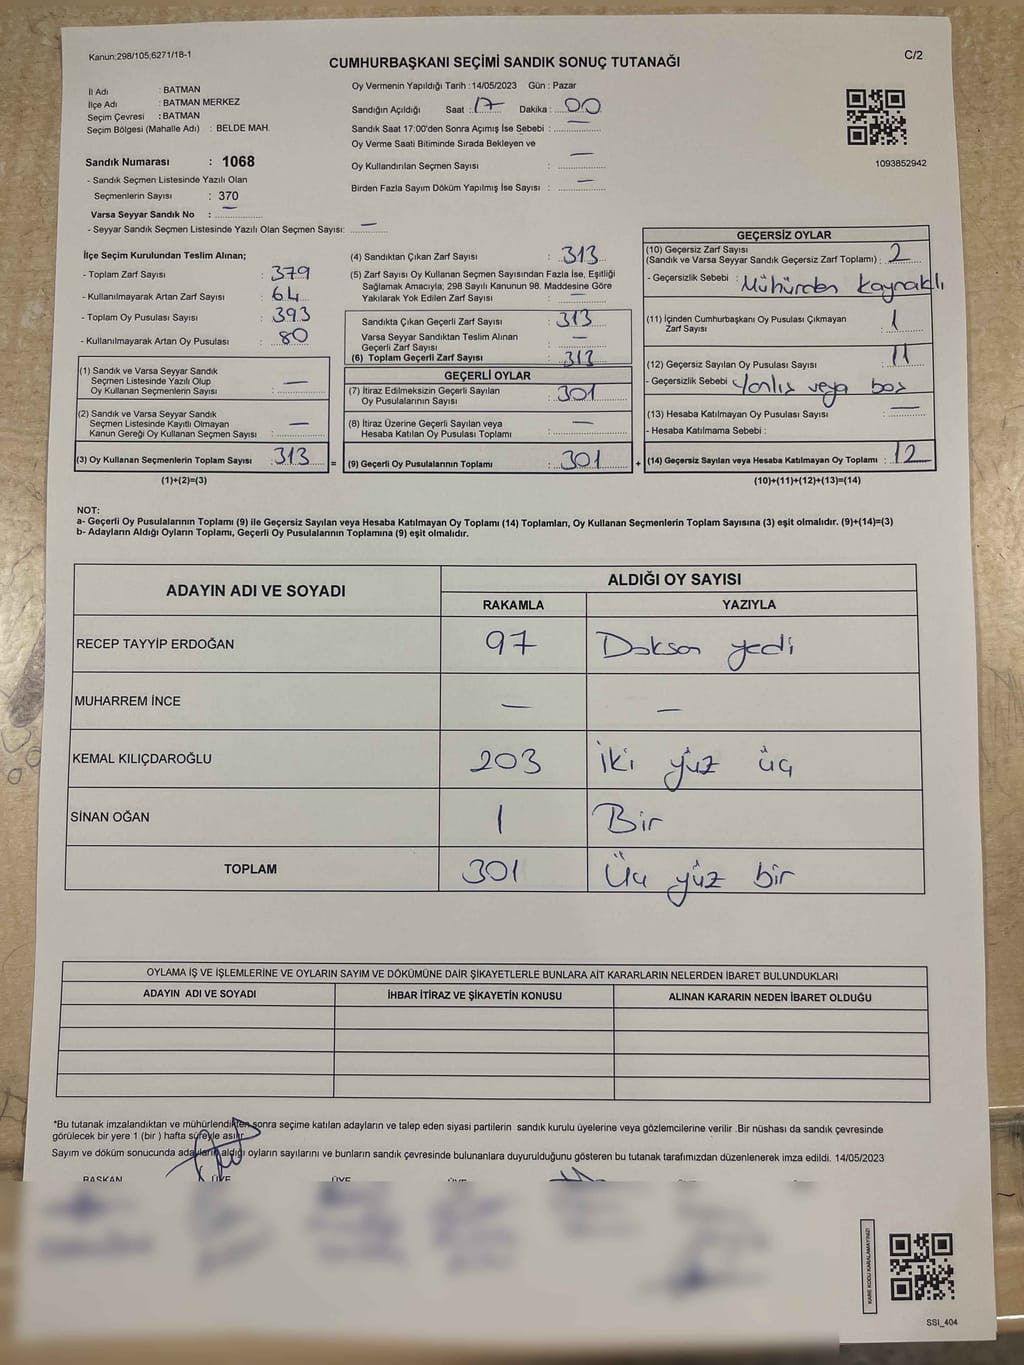 Kanun:298/105,6271/18-1
C/2
CUMHURBAŞKANI SEÇİMİ SANDIK SONUÇ TUTANAĞI
İl Adı : BATMAN
İlçe Adı : BATMAN MERKEZ
Seçim Çevresi : BATMAN
Seçim Bölgesi (Mahalle Adı) : BELDE MAH.
Oy Vermenin Yapıldığı Tarih :14/05/2023 Gün : Pazar
Sandığın Açıldığı Saat : 17 Dakika : 00
Sandık Saat 17:00'den Sonra Açımış İse Sebebi : —
Oy Verme Saati Bitiminde Sırada Bekleyen ve
Oy Kullandırılan Seçmen Sayısı : —
Birden Fazla Sayım Döküm Yapılmış İse Sayısı : —
1093852942
Sandık Numarası : 1068
- Sandık Seçmen Listesinde Yazılı Olan
Seçmenlerin Sayısı : 370
Varsa Seyyar Sandık No : —
- Seyyar Sandık Seçmen Listesinde Yazılı Olan Seçmen Sayısı: —
İlçe Seçim Kurulundan Teslim Alınan;
- Toplam Zarf Sayısı : 379
- Kullanılmayarak Artan Zarf Sayısı : 64
- Toplam Oy Pusulası Sayısı : 393
- Kullanılmayarak Artan Oy Pusulası : 80
(1) Sandık ve Varsa Seyyar Sandık
Seçmen Listesinde Yazılı Olup
Oy Kullanan Seçmenlerin Sayısı : —
(2) Sandık ve Varsa Seyyar Sandık
Seçmen Listesinde Kayıtlı Olmayan
Kanun Gereği Oy Kullanan Seçmen Sayısı : —
(3) Oy Kullanan Seçmenlerin Toplam Sayısı : 313
(1)+(2)=(3)
(4) Sandıktan Çıkan Zarf Sayısı : 313
(5) Zarf Sayısı Oy Kullanan Seçmen Sayısından Fazla İse, Eşitliği
Sağlamak Amacıyla; 298 Sayılı Kanunun 98. Maddesine Göre
Yakılarak Yok Edilen Zarf Sayısı : —
Sandıkta Çıkan Geçerli Zarf Sayısı : 313
Varsa Seyyar Sandıktan Teslim Alınan
Geçerli Zarf Sayısı : —
(6) Toplam Geçerli Zarf Sayısı : 313
GEÇERLİ OYLAR
(7) İtiraz Edilmeksizin Geçerli Sayılan
Oy Pusulalarının Sayısı : 301
(8) İtiraz Üzerine Geçerli Sayılan veya
Hesaba Katılan Oy Pusulası Toplamı : —
= (9) Geçerli Oy Pusulalarının Toplamı : 301
GEÇERSİZ OYLAR
(10) Geçersiz Zarf Sayısı
(Sandık ve Varsa Seyyar Sandık Geçersiz Zarf Toplamı) : 2
- Geçersizlik Sebebi : Mühürden kaynaklı
(11) İçinden Cumhurbaşkanı Oy Pusulası Çıkmayan
Zarf Sayısı : 1
(12) Geçersiz Sayılan Oy Pusulası Sayısı : 11
- Geçersizlik Sebebi Yanlış veya boş
(13) Hesaba Katılmayan Oy Pusulası Sayısı : —
- Hesaba Katılmama Sebebi :
+ (14) Geçersiz Sayılan veya Hesaba Katılmayan Oy Toplamı : 12
(10)+(11)+(12)+(13)=(14)
NOT:
a- Geçerli Oy Pusulalarının Toplamı (9) ile Geçersiz Sayılan veya Hesaba Katılmayan Oy Toplamı (14) Toplamları, Oy Kullanan Seçmenlerin Toplam Sayısına (3) eşit olmalıdır. (9)+(14)=(3)
b- Adayların Aldığı Oyların Toplamı, Geçerli Oy Pusulalarının Toplamına (9) eşit olmalıdır.
ADAYIN ADI VE SOYADI
ALDIĞI OY SAYISI
RAKAMLA YAZIYLA
RECEP TAYYİP ERDOĞAN 97 Doksan yedi
MUHARREM İNCE — —
KEMAL KILIÇDAROĞLU 203 İki yüz üç
SİNAN OĞAN 1 Bir
TOPLAM 301 Üç yüz bir
OYLAMA İŞ VE İŞLEMLERİNE VE OYLARIN SAYIM VE DÖKÜMÜNE DAİR ŞİKAYETLERLE BUNLARA AİT KARARLARIN NELERDEN İBARET BULUNDUKLARI
ADAYIN ADI VE SOYADI İHBAR İTİRAZ VE ŞİKAYETİN KONUSU ALINAN KARARIN NEDEN İBARET OLDUĞU
*Bu tutanak imzalandıktan ve mühürlendikten sonra seçime katılan adayların ve talep eden siyasi partilerin sandık kurulu üyelerine veya gözlemcilerine verilir .Bir nüshası da sandık çevresinde
görülecek bir yere 1 (bir ) hafta süreyle asılır.
Sayım ve döküm sonucunda adayların aldığı oyların sayılarını ve bunların sandık çevresinde bulunanlara duyurulduğunu gösteren bu tutanak tarafımızdan düzenlenerek imza edildi. 14/05/2023
BAŞKAN ÜYE ÜYE
KARE KODU KARALAMAYINIZ!
SSI_404